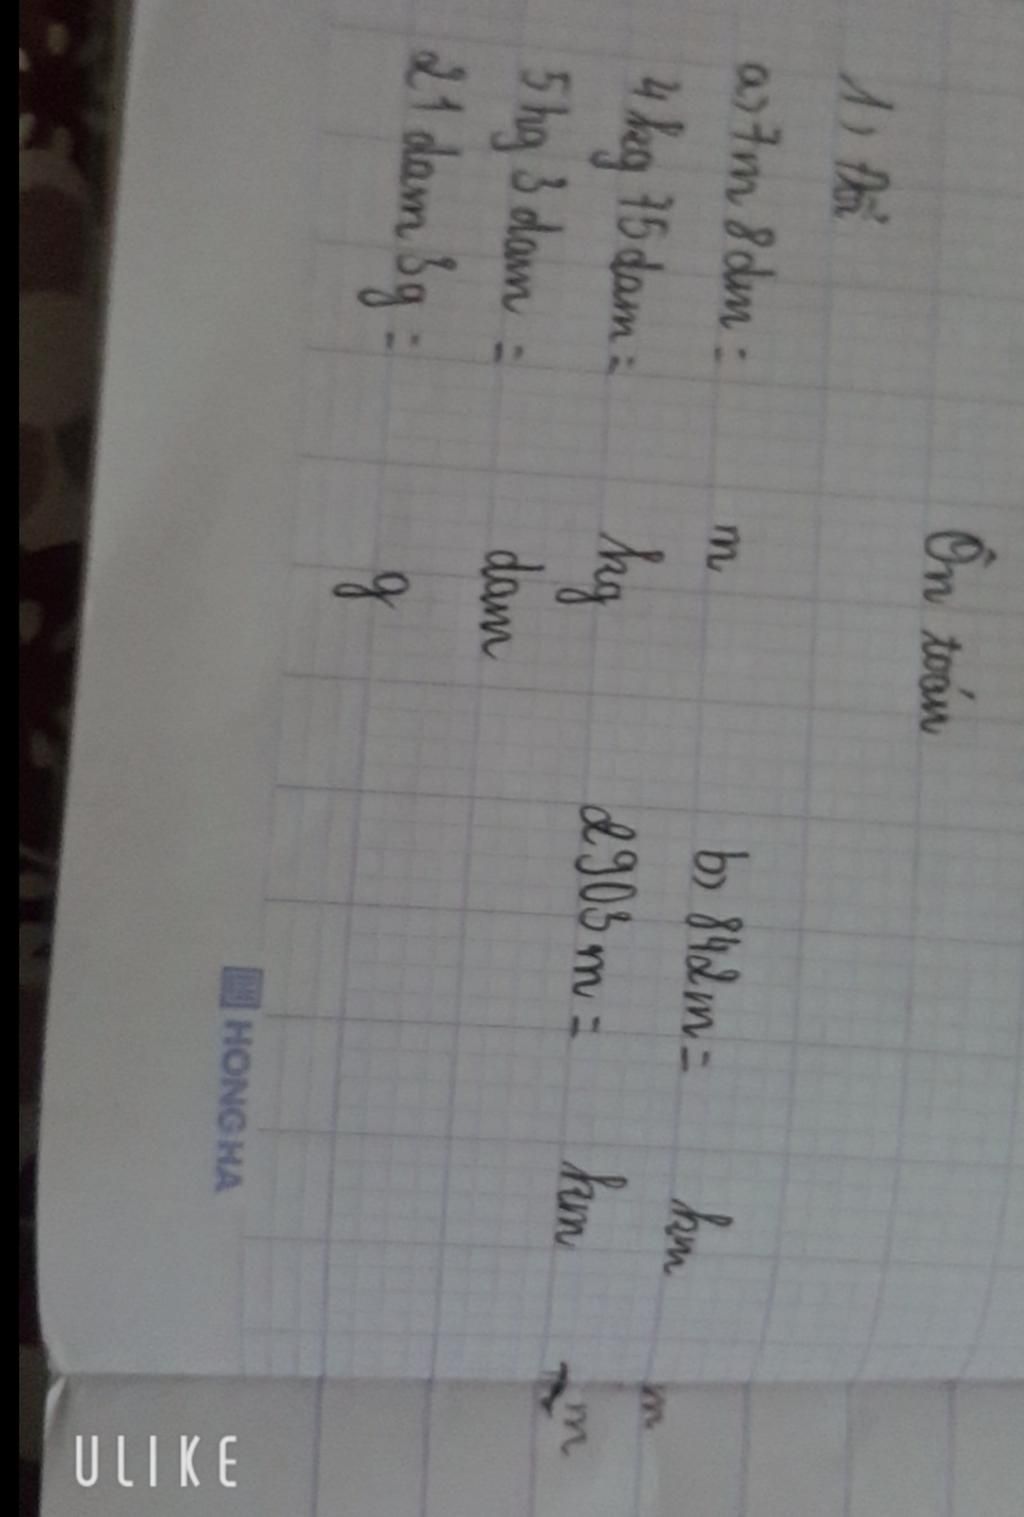 Ôn toán
1, Đổi
a, 7m 8dm = m b, 84dm = hm m
4kg 75dam = hg 2903m = km m
5hg 3dam = dam
21dam 3g = g
HONG HA
ULIKE